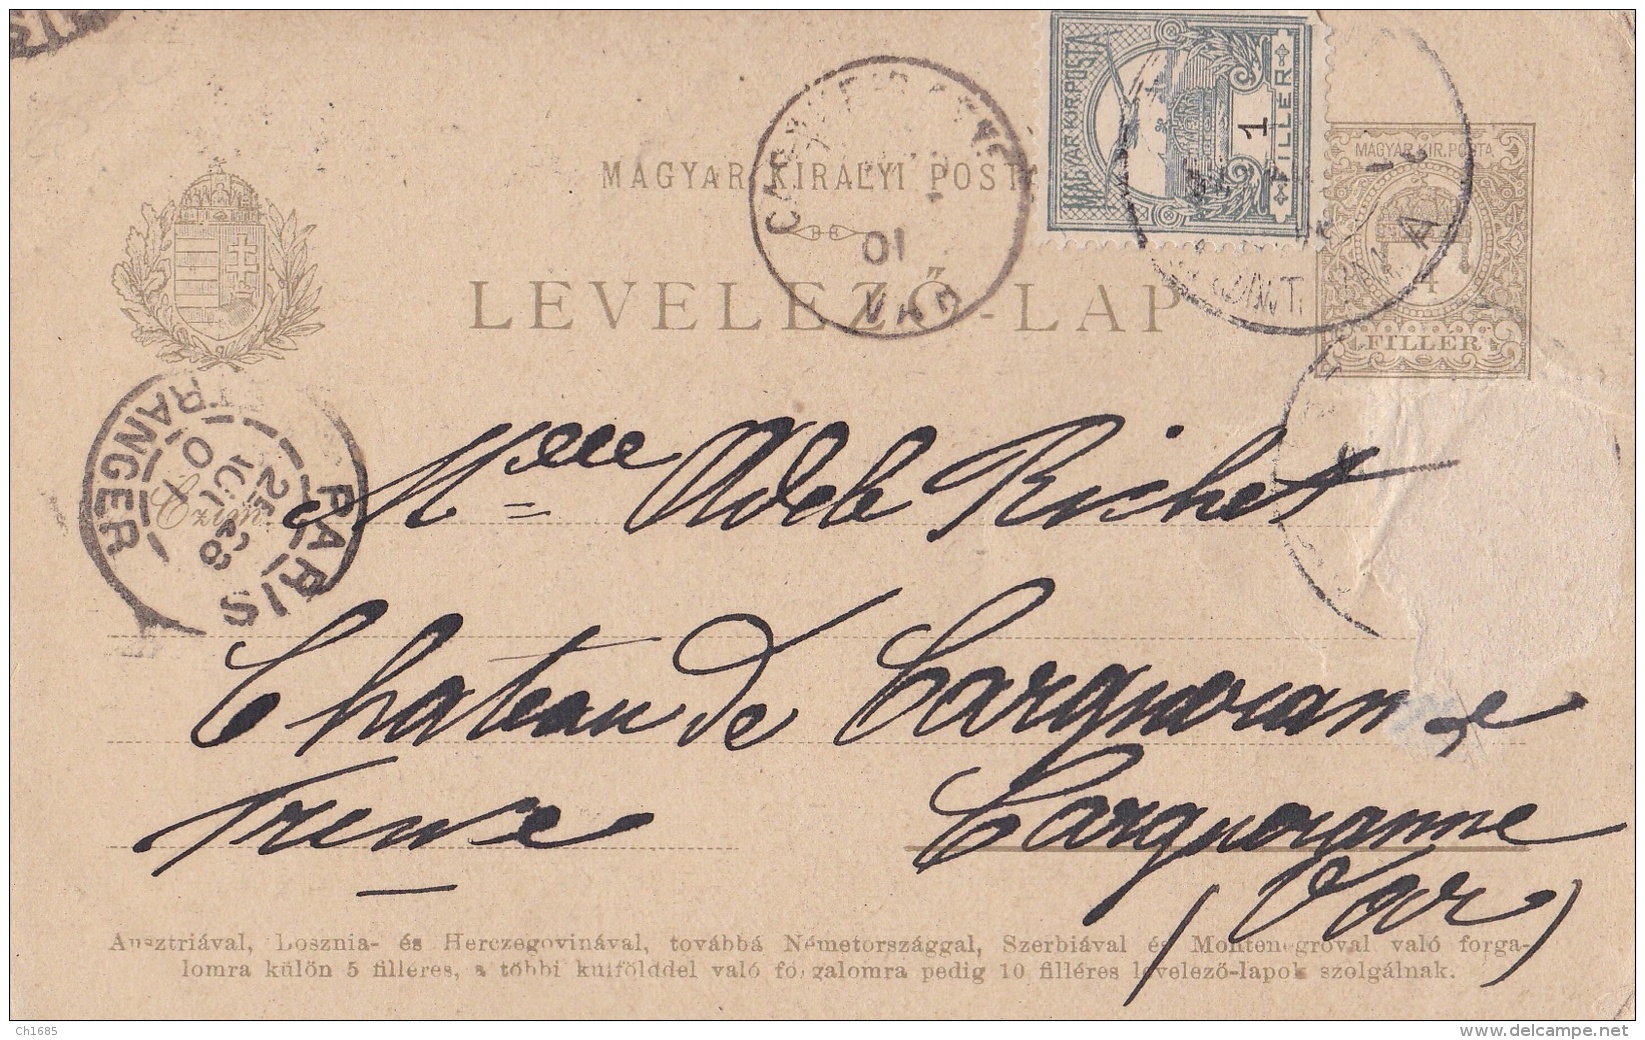 MAGYAR KIRÁLYI POSTA
LEVELEZŐ-LAP
MAGYAR KIR. POSTA
1
FILLÉR
MAGYAR KIR. POSTA
4
FILLÉR
01
VAR
PARIS
ETRANGER
Czim
Melle Adèle Richet
Chateau de Carqueiranne
France
Carqueiranne
(Var)
Ausztriával, Bosznia- és Herczegovinával, továbbá Németországgal, Szerbiával és Montenegróval való forga-
lomra külön 5 filléres, a többi külfölddel való forgalomra pedig 10 filléres levelező-lapok szolgálnak.
Ch1685
www.delcampe.net